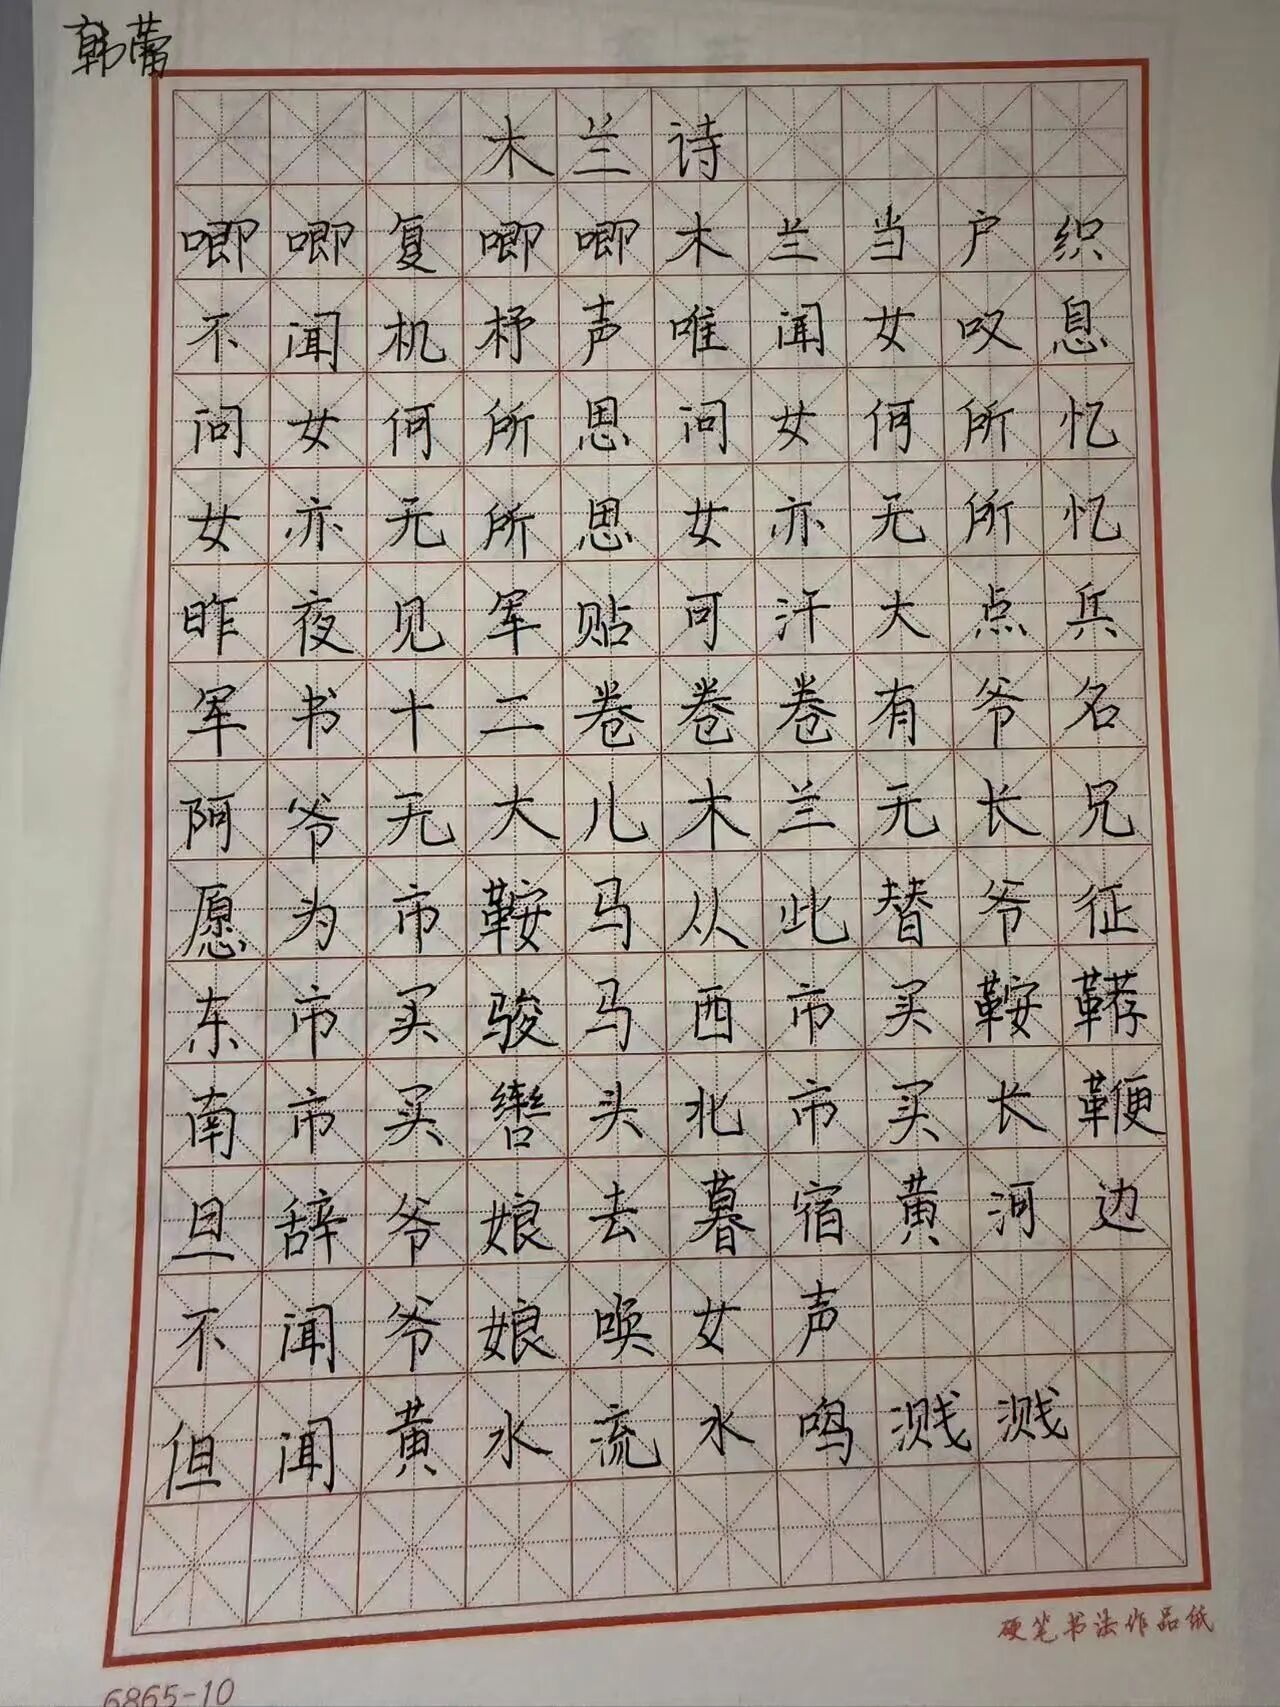 韩蕾
木兰诗
唧唧复唧唧木兰当户织
不闻机杼声唯闻女叹息
问女何所思问女何所忆
女亦无所思女亦无所忆
昨夜见军贴可汗大点兵
军书十二卷卷卷有爷名
阿爷无大儿木兰无长兄
愿为市鞍马从此替爷征
东市买骏马西市买鞍鞯
南市买辔头北市买长鞭
旦辞爷娘去暮宿黄河边
不闻爷娘唤女声
但闻黄水流水鸣溅溅
硬笔书法作品纸
6865-10